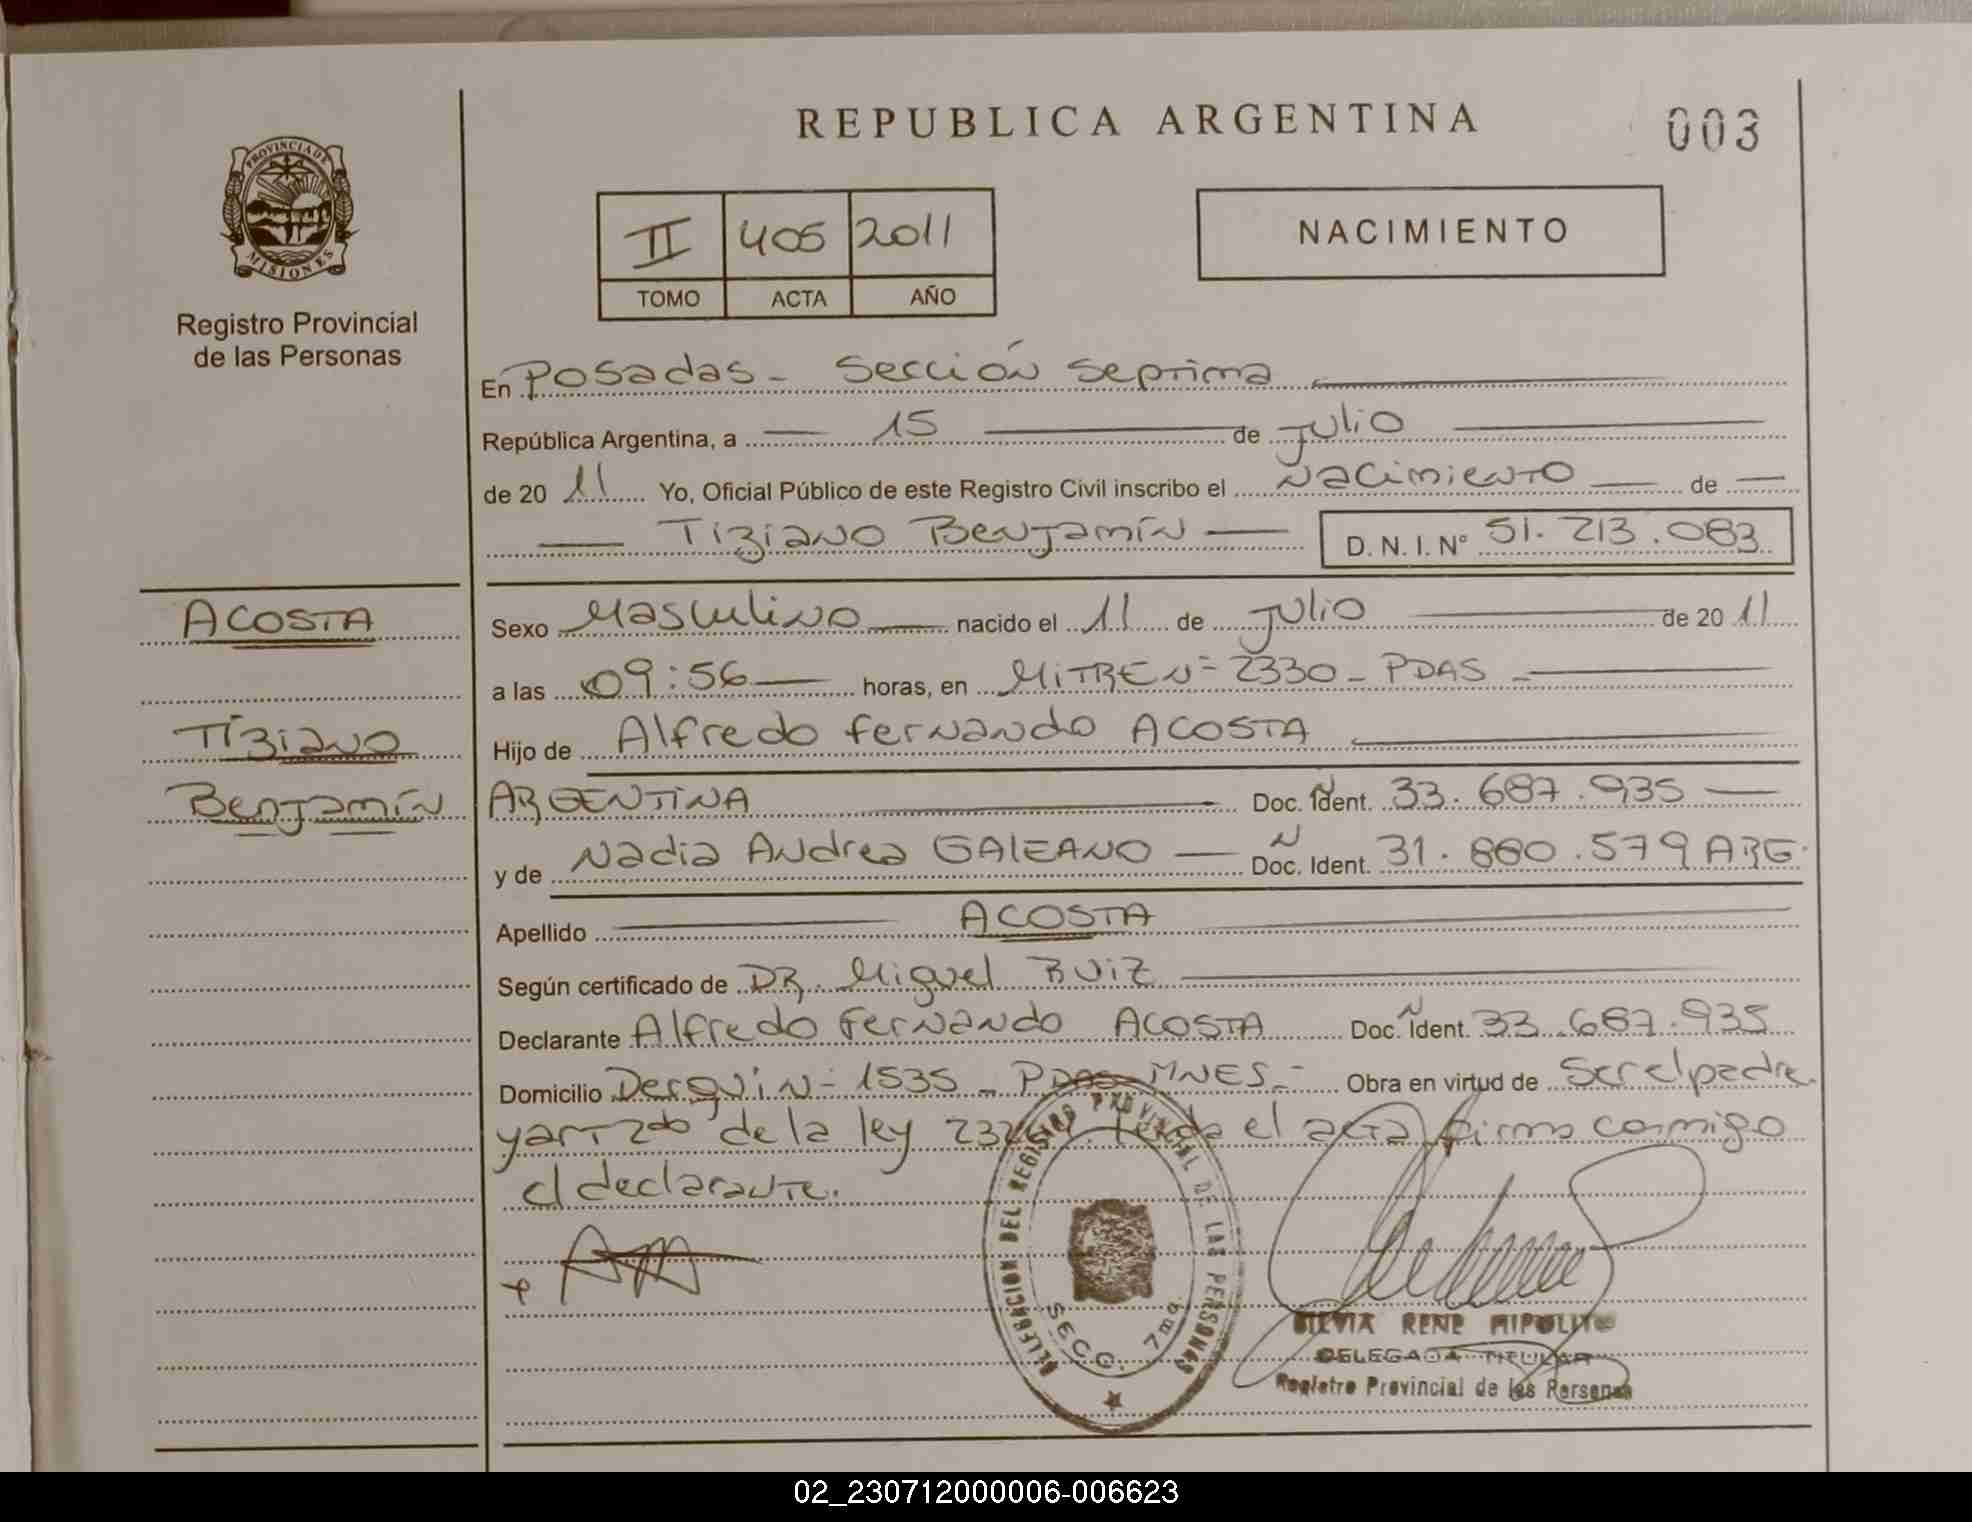 REPUBLICA ARGENTINA
003
PROVINCIA DE
MISIONES
Registro Provincial
de las Personas
II 405 2011
TOMO ACTA AÑO
NACIMIENTO
En Posadas - Sección Septima
República Argentina, a 15 de Julio
de 20 11 Yo, Oficial Público de este Registro Civil inscribo el Nacimiento de
Tiziano Benjamín D. N. I. Nº 51.213.083
ACOSTA
Tiziano
Benjamín
Sexo Masculino nacido el 11 de Julio de 20 11
a las 09:56 horas, en MITRE Nº 2330 - PDAS -
Hijo de Alfredo Fernando ACOSTA
ARGENTINA Doc. Ident. N 33.687.935
y de Nadia Andrea GALEANO Doc. Ident. N 31.880.579 ARG.
Apellido ACOSTA
Según certificado de DR. Miguel RUIZ
Declarante Alfredo Fernando ACOSTA Doc. Ident. N 33.687.935
Domicilio Derqui N- 1535 - PDAS - MNES - Obra en virtud de Ser el padre
y art 2do de la ley el acta firma conmigo
el declarante.
DELEGACION DEL REGISTRO PROVINCIAL DE LAS PERSONAS
SECC. 7ma
SILVIA RENE HIPOLITO
DELEGADA TITULAR
Registro Provincial de las Personas
02_230712000006-006623